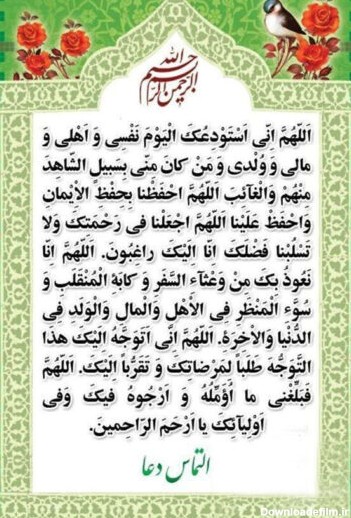 بسم الله الرحمن الرحیم
اَللّهُمَّ اِنّی اَسْتَوْدِعُکَ الْیَوْمَ نَفْسی وَ اَهْلی وَ
مالی وَ وُلْدی وَ مَنْ کانَ مِنّی بِسَبیلِ الشّاهِدَ
مِنْهُمْ وَالْغآئِبَ اَللّهُمَّ احْفَظْنا بِحِفْظِ الْاْیمانِ
وَاحْفَظْ عَلَیْنا اَللّهُمَّ اجْعَلْنا فی رَحْمَتِکَ وَلا
تَسْلُبْنا فَضْلَکَ اِنّا اِلَیْکَ راغِبُونَ. اَللّهُمَّ اِنّا
نَعُوذُ بِکَ مِنْ وَعْثآءِ السَّفَرِ وَ کابَهِ الْمُنْقَلَبِ وَ
سُوَّءِ الْمَنْظَرِ فِی الاْهْلِ وَالْمالِ وَالْوَلَدِ فِی
الدُّنْیا وَالاْخِرَهِ. اَللّهُمَّ اِنّی اَتَوَجَّهُ اِلَیْکَ هذَا
التَّوَجُّهَ طَلَباً لِمَرْضاتِکَ وَ تَقَرُّباً اِلَیْکَ. اَللّهُمَّ
فَبَلِّغْنی ما اُؤَمِّلُهُ وَ اَرْجُوهُ فیکَ وَفی
اَوْلِیآئِکَ یا اَرْحَمَ الرّاحِمینَ.
التماس دعا
Downloadefilm.ir